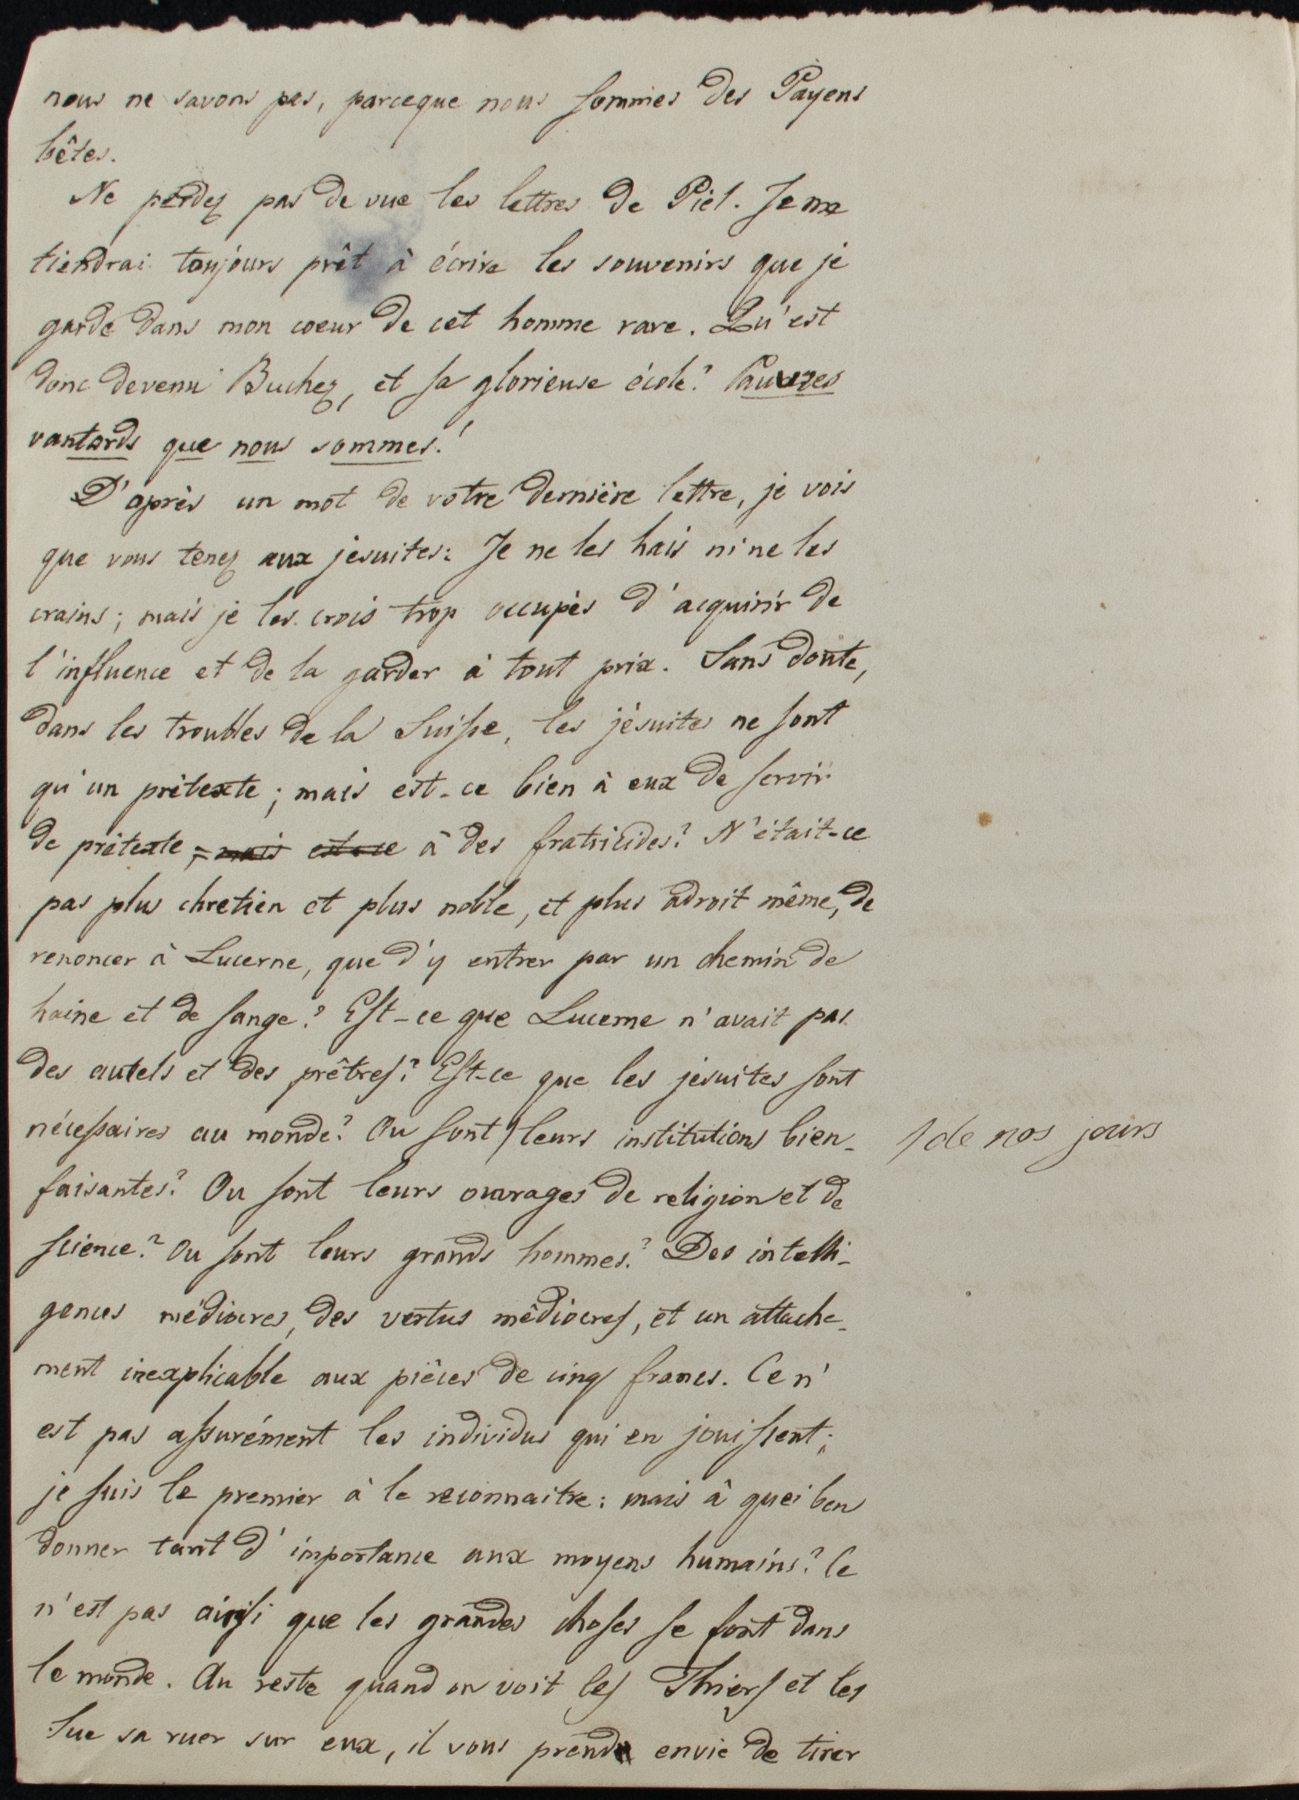 nous ne savons pas, parceque nous sommes des Payens
bêtes.
Ne perdez pas de vue les lettres de Piel. Je me
tiendrai toujours prêt à écrire les souvenirs que je
garde dans mon coeur de cet homme rare. Qu'est
donc devenu Buchez, et sa glorieuse école? Pauvres
vantards que nous sommes!
D'après un mot de votre dernière lettre, je vois
que vous tenez aux jésuites: Je ne les hais ni ne les
crains; mais je les crois trop occupés d'acquirir de
l'influence et de la garder à tout prix. Sans doute,
dans les troubles de la Suisse, les jésuites ne sont
qu'un prétexte; mais est-ce bien à eux de servir
de prétexte, mais est-ce à des fratricides? N'était-ce
pas plus chretien et plus noble, et plus adroit même, de
renoncer à Lucerne, que d'y entrer par un chemin de
haine et de sange? Est-ce que Lucerne n'avait pas
des autels et des prêtres? Est-ce que les jésuites sont
nécessaires au monde? Ou sont leurs institutions bien-
de nos jours
faisantes? Ou sont leurs ouvrages de religion et de
science? Ou sont leurs grands hommes? Des intelli-
gences médiocres, des vertus médiocres, et un attache-
ment inexplicable aux pièces de cinq francs. Ce n'
est pas assurément les individus qui en jouissent;
je suis le premier à le reconnaitre: mais à quoi bon
donner tant d'importance aux moyens humains? Ce
n'est pas ainsi que les grandes choses se font dans
le monde. Au reste quand on voit les Thiers et les
Sue sa ruer sur eux, il vous prend envie de tirer